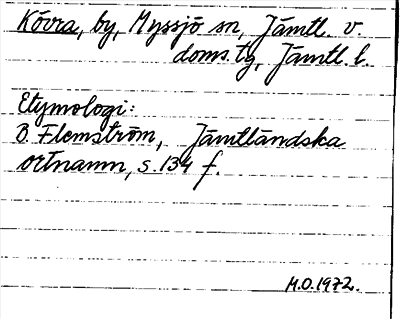 Kövra, by, Myssjö sn, Jämtl. v.
doms.tg, Jämtl. l.
Etymologi:
B. Flemström, Jämtländska
ortnamn, s. 134 f.
M.O. 1972.